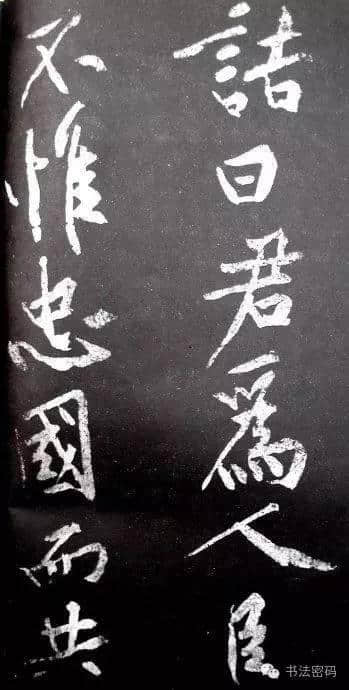 詰曰君爲人臣
不惟忠國而共
书法密码